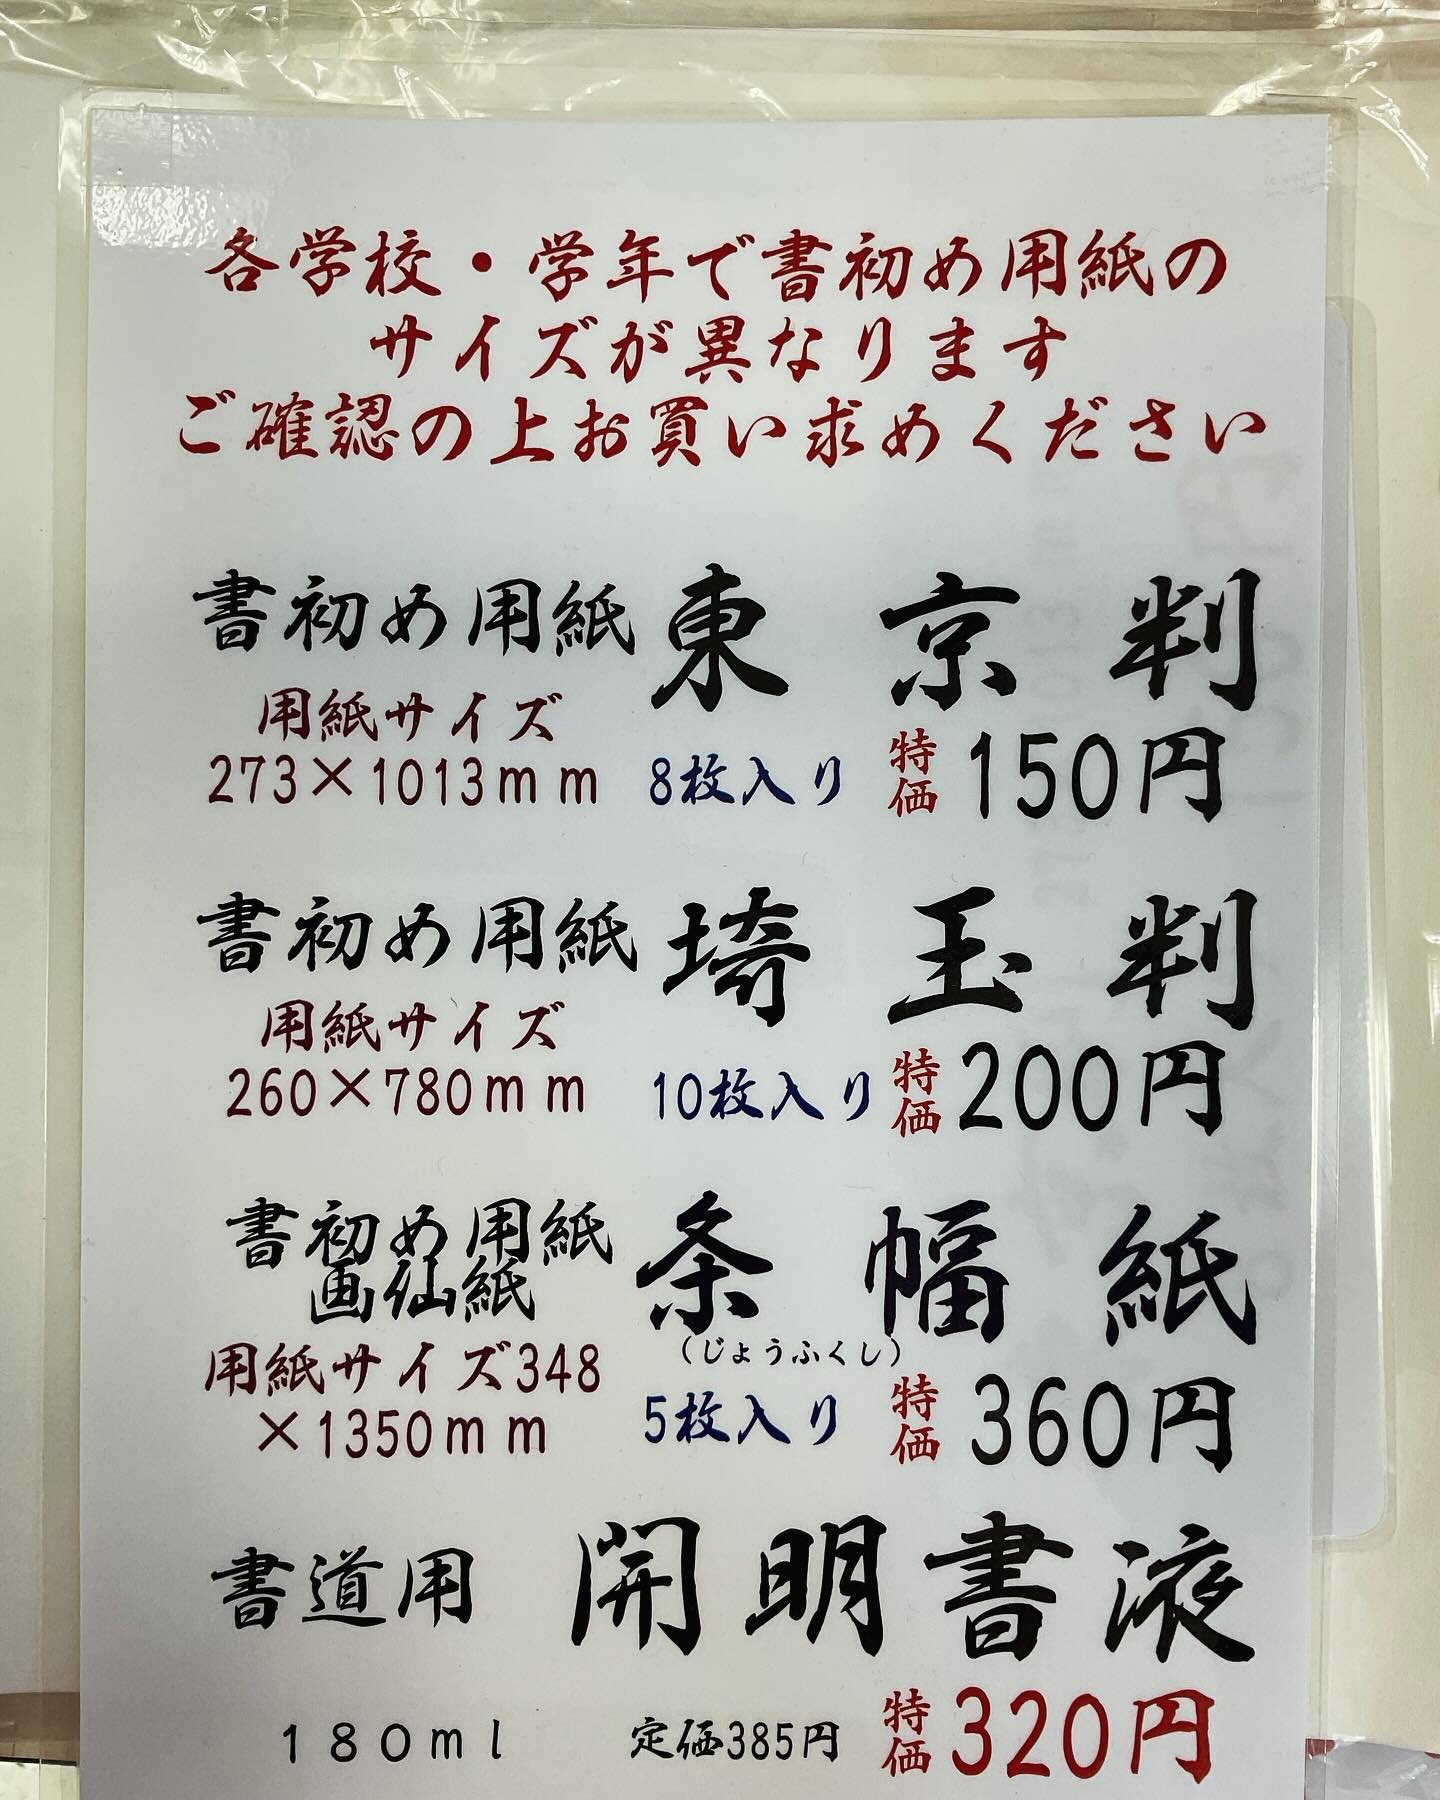 各学校・学年で書初め用紙の
サイズが異なります
ご確認の上お買い求めください
書初め用紙 東京判
用紙サイズ
273×1013mm 8枚入り 特価 150円
書初め用紙 埼玉判
用紙サイズ
260×780mm 10枚入り 特価 200円
書初め用紙 条幅紙
画仙紙
(じょうふくし)
用紙サイズ348
×1350mm 5枚入り 特価 360円
書道用 開明書液
180ml 定価385円 特価 320円